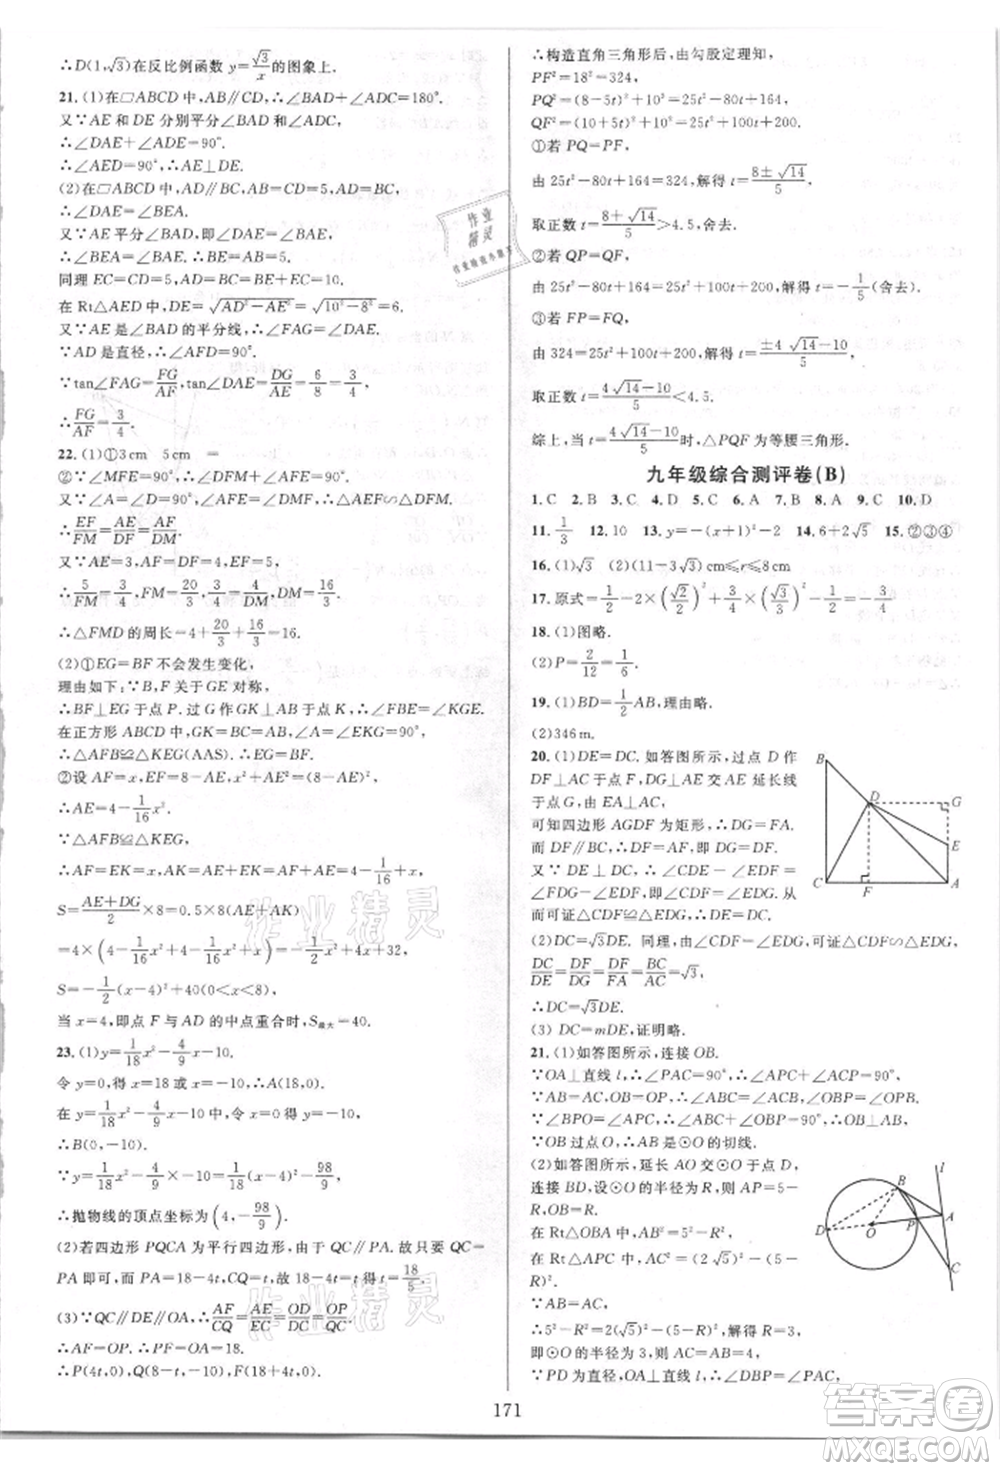 ∴D(1,√3)在反比例函数 y=√3/x 的图象上.
21. (1)在▱ABCD 中,AB∥CD,∴∠BAD+∠ADC=180°.
又∵AE 和 DE 分别平分∠BAD 和∠ADC,
∴∠DAE+∠ADE=90°.
∴∠AED=90°,∴AE⊥DE.
(2)在▱ABCD 中,AD∥BC,AB=CD=5,AD=BC,
∴∠DAE=∠BEA.
又∵AE 平分∠BAD,即∠DAE=∠BAE,
∴∠BAE=∠BEA.∴BE=AB=5.
同理 EC=CD=5,AD=BC=BE+EC=10.
在 Rt△AED 中,DE=√(AD²−AE²)=√(10²−8²)=6,
又∵AE 是∠BAD 的平分线,∴∠FAG=∠DAE.
∵AD 是直径,∴∠AFD=90°.
∵tan∠FAG=FG/AF,tan∠DAE=DG/AE=6/8=3/4,
∴FG/AF=3/4.
22. (1)①3cm 5cm =
②∵∠MFE=90°,∴∠DFM+∠AFE=90°.
又∵∠A=∠D=90°,∠AFE=∠DMF,∴△AEF∽△DFM.
∴EF/FM=AE/DF=AF/DM.
又∵AE=3,AF=DF=4,EF=5.
∴5/FM=3/4=4/DM,∴FM=20/3,DM=16/3.
∴△FMD 的周长=4+20/3+16/3=16.
(2)①EG=BF 不会发生变化,
理由如下:∵B,F 关于 GE 对称,
∴BF⊥EG 于点 P.过 G 作 GK⊥AB 于点 K,∴∠FBE=∠KGE.
在正方形 ABCD 中,GK=BC=AB,∠A=∠EKG=90°,
∴△AFB≌△KEG(AAS).∴EG=BF.
②设 AF=x,EF=8−AE,x²+AE²=(8−AE)²,
∴AE=4−1/16x².
∵△AFB≌△KEG,
∴AF=EK=x,AK=AE+EK=AF+AE=4−1/16x²+x,
S=(AE+DG)/2×8=0.5×8(AE+AK)
=4×(4−1/16x²+4−1/16x²+x)=−1/2x²+4x+32,
S=−1/2(x−4)²+40(0<x<8)
当 x=4,即点 F 与 AD 的中点重合时,S最大=40.
23. (1)y=1/18x²−4/9x−10.
令 y=0,得 x=18或 x=−10,∴A(18,0).
在 y=1/18x²−4/9x−10 中,令 x=0 得 y=−10,
∴B(0,−10).
∵y=1/18x²−4/9x−10=1/18(x−4)²−98/9,
∴抛物线的顶点坐标为(4,−98/9).
(2)若四边形 PQCA 为平行四边形,由于 QC∥PA.故只要 QC=
PA 即可,而 PA=18−4t,CQ=t,故 18−4t=t 得 t=18/5.
(3)∵QC∥PA,∴QC∥DE∥OA,∴AF/CQ=AE/EC=OD/DC=OP/CQ.
∴AF=OP.∴PF=OA=18.
∴P(4t,0),Q(8−t,−10),F(18+4t,0).
∴构造直角三角形后,由勾股定理知,
PF²=18²=324,
PQ²=(8−5t)²+10²=25t²−80t+164,
QF²=(10+5t)²+10²=25t²+100t+200,
①若 PQ=PF,
由 25t²−80t+164=324,解得 t=(8±√14)/5.
取正数 t=(8+√14)/5>4.5,舍去.
②若 QP=QF,
由 25t²−80t+164=25t²+100t+200,解得 t=−1/5(舍去).
③若 FP=FQ,
由 324=25t²+100t+200,解得 t=(±4√14−10)/5.
取正数 t=(4√14−10)/5<4.5.
综上,当 t=(4√14−10)/5 时,△PQF 为等腰三角形.
九年级综合测评卷(B)
1.C 2.B 3.C 4.D 5.C 6.A 7.B 8.A 9.C 10.D
11. 1/3 12. 10 13. y=−(x+1)²−2 14. 6+2√5 15. ②③④
16. (1)√3 (2)(11−3√3)cm≤r≤8cm
17. 原式=1/2−2×(√2/2)²+3/4×(√3/2)²=1/2−...=−3/4
18. (1)图略.
(2)P=2/12=1/6.
19. (1)BD=1/2AB,理由略.
(2)346m.
20. (1)DE=DC.如答图所示,过点 D 作
DF⊥AC 于点 F,DG⊥AE 交延长线
于点 G,由 EA⊥AC,
可知四边形 AGDF 为矩形,故 DG=FA.
而 DF∥BC,∴DF=AF,即 DF=DG,
又∵BE⊥DC,∴∠CDF=∠EDG.
∠CFD=∠EGD=90°,
从而可证△CDF≌△EDG.∴DE=DC.
(2)DC=√3DE.同理,∠CDF=∠EDG,可证△CDF∽△EDG,
DC/DE=DF/DG=DF/FA=BC/AC=√3,
∴DC=√3DE.
(3) DC=mDE,证明略.
21. (1)如答图所示,连接 OB.
∵OA⊥直线 l,∴∠PAC=90°,∴∠APC+∠ACP=90°.
∵AB=AC,OB=OP,∴∠ABC=∠ACB,∠OBP=∠OPB.
∵∠BPO=∠APC,∴∠ABC+∠OBP=90°,∴AB⊥OB.
∵OB 过点 O,∴AB 是⊙O 的切线.
(2)如答图所示,延长 AO 交⊙O 于点 D,
连接 BD,设⊙O 的半径为 R,则 AP=5−
R,OB=R,
在 Rt△OBA 中,AB²=5²−R²,
在 Rt△APC 中,AC²=(2√5)²−
(5−R)².
∵AB=AC,
∴5²−R²=(2√5)²−(5−R)²,解得 R=3,
即⊙O 的半径为 3,则 AC=AB=4.
∵PD 为直径,OA⊥直线 l,∴∠DBP=∠PAC.
B
D
G
E
C
F
A
B
D
O
P
A
C
l
171
作业精灵
作业精灵
作业
精灵
答案圈
MXQE.COM